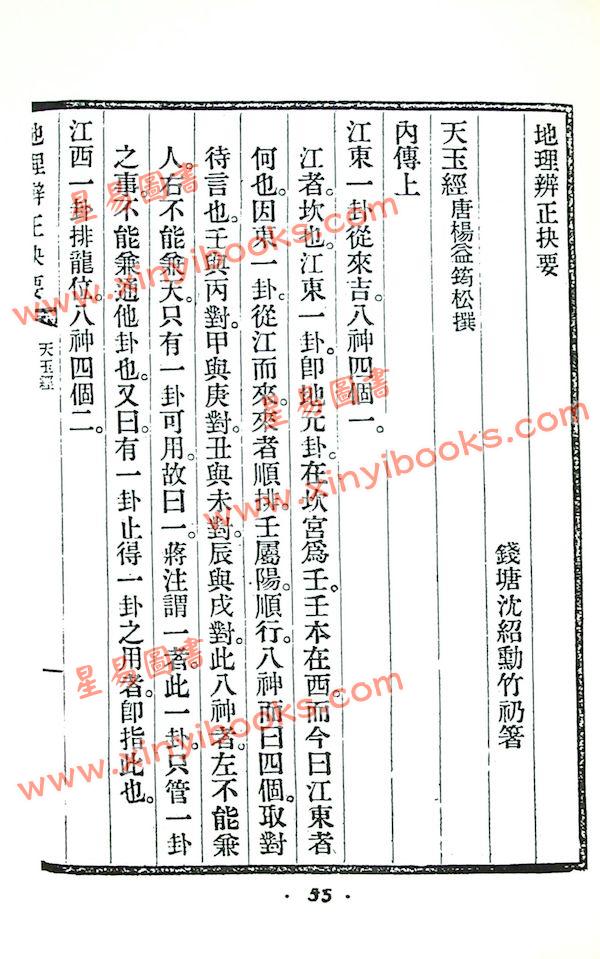 地理辨正抉要
錢塘沈紹勳竹礽箸
天玉經 唐楊益筠松撰
內傳上
江東一卦從來吉。八神四個一。
江者坎也。江東一卦。卽地元卦。在坎宮爲壬。壬本在西。而今曰江東者
何也。因東一卦。從江而來。來者順排。壬屬陽順行。八神而曰四個。取對
待言也。壬與丙對。甲與庚對。丑與未對。辰與戌對。此八神者。左不能兼
人。右不能兼天。只有一卦可用。故曰一。蔣注謂一者。此一卦。只管一卦
之事。不能兼通他卦也。又曰。有一卦止得一卦之用者。卽指此也。
江西一卦排龍位。八神四個二。
地理辨正抉要
天玉經
一
· 55 ·
星易圖書
www.xinyibooks.com
星易圖書
www.xinyibooks.com
星易圖書
www.xinyibooks.com